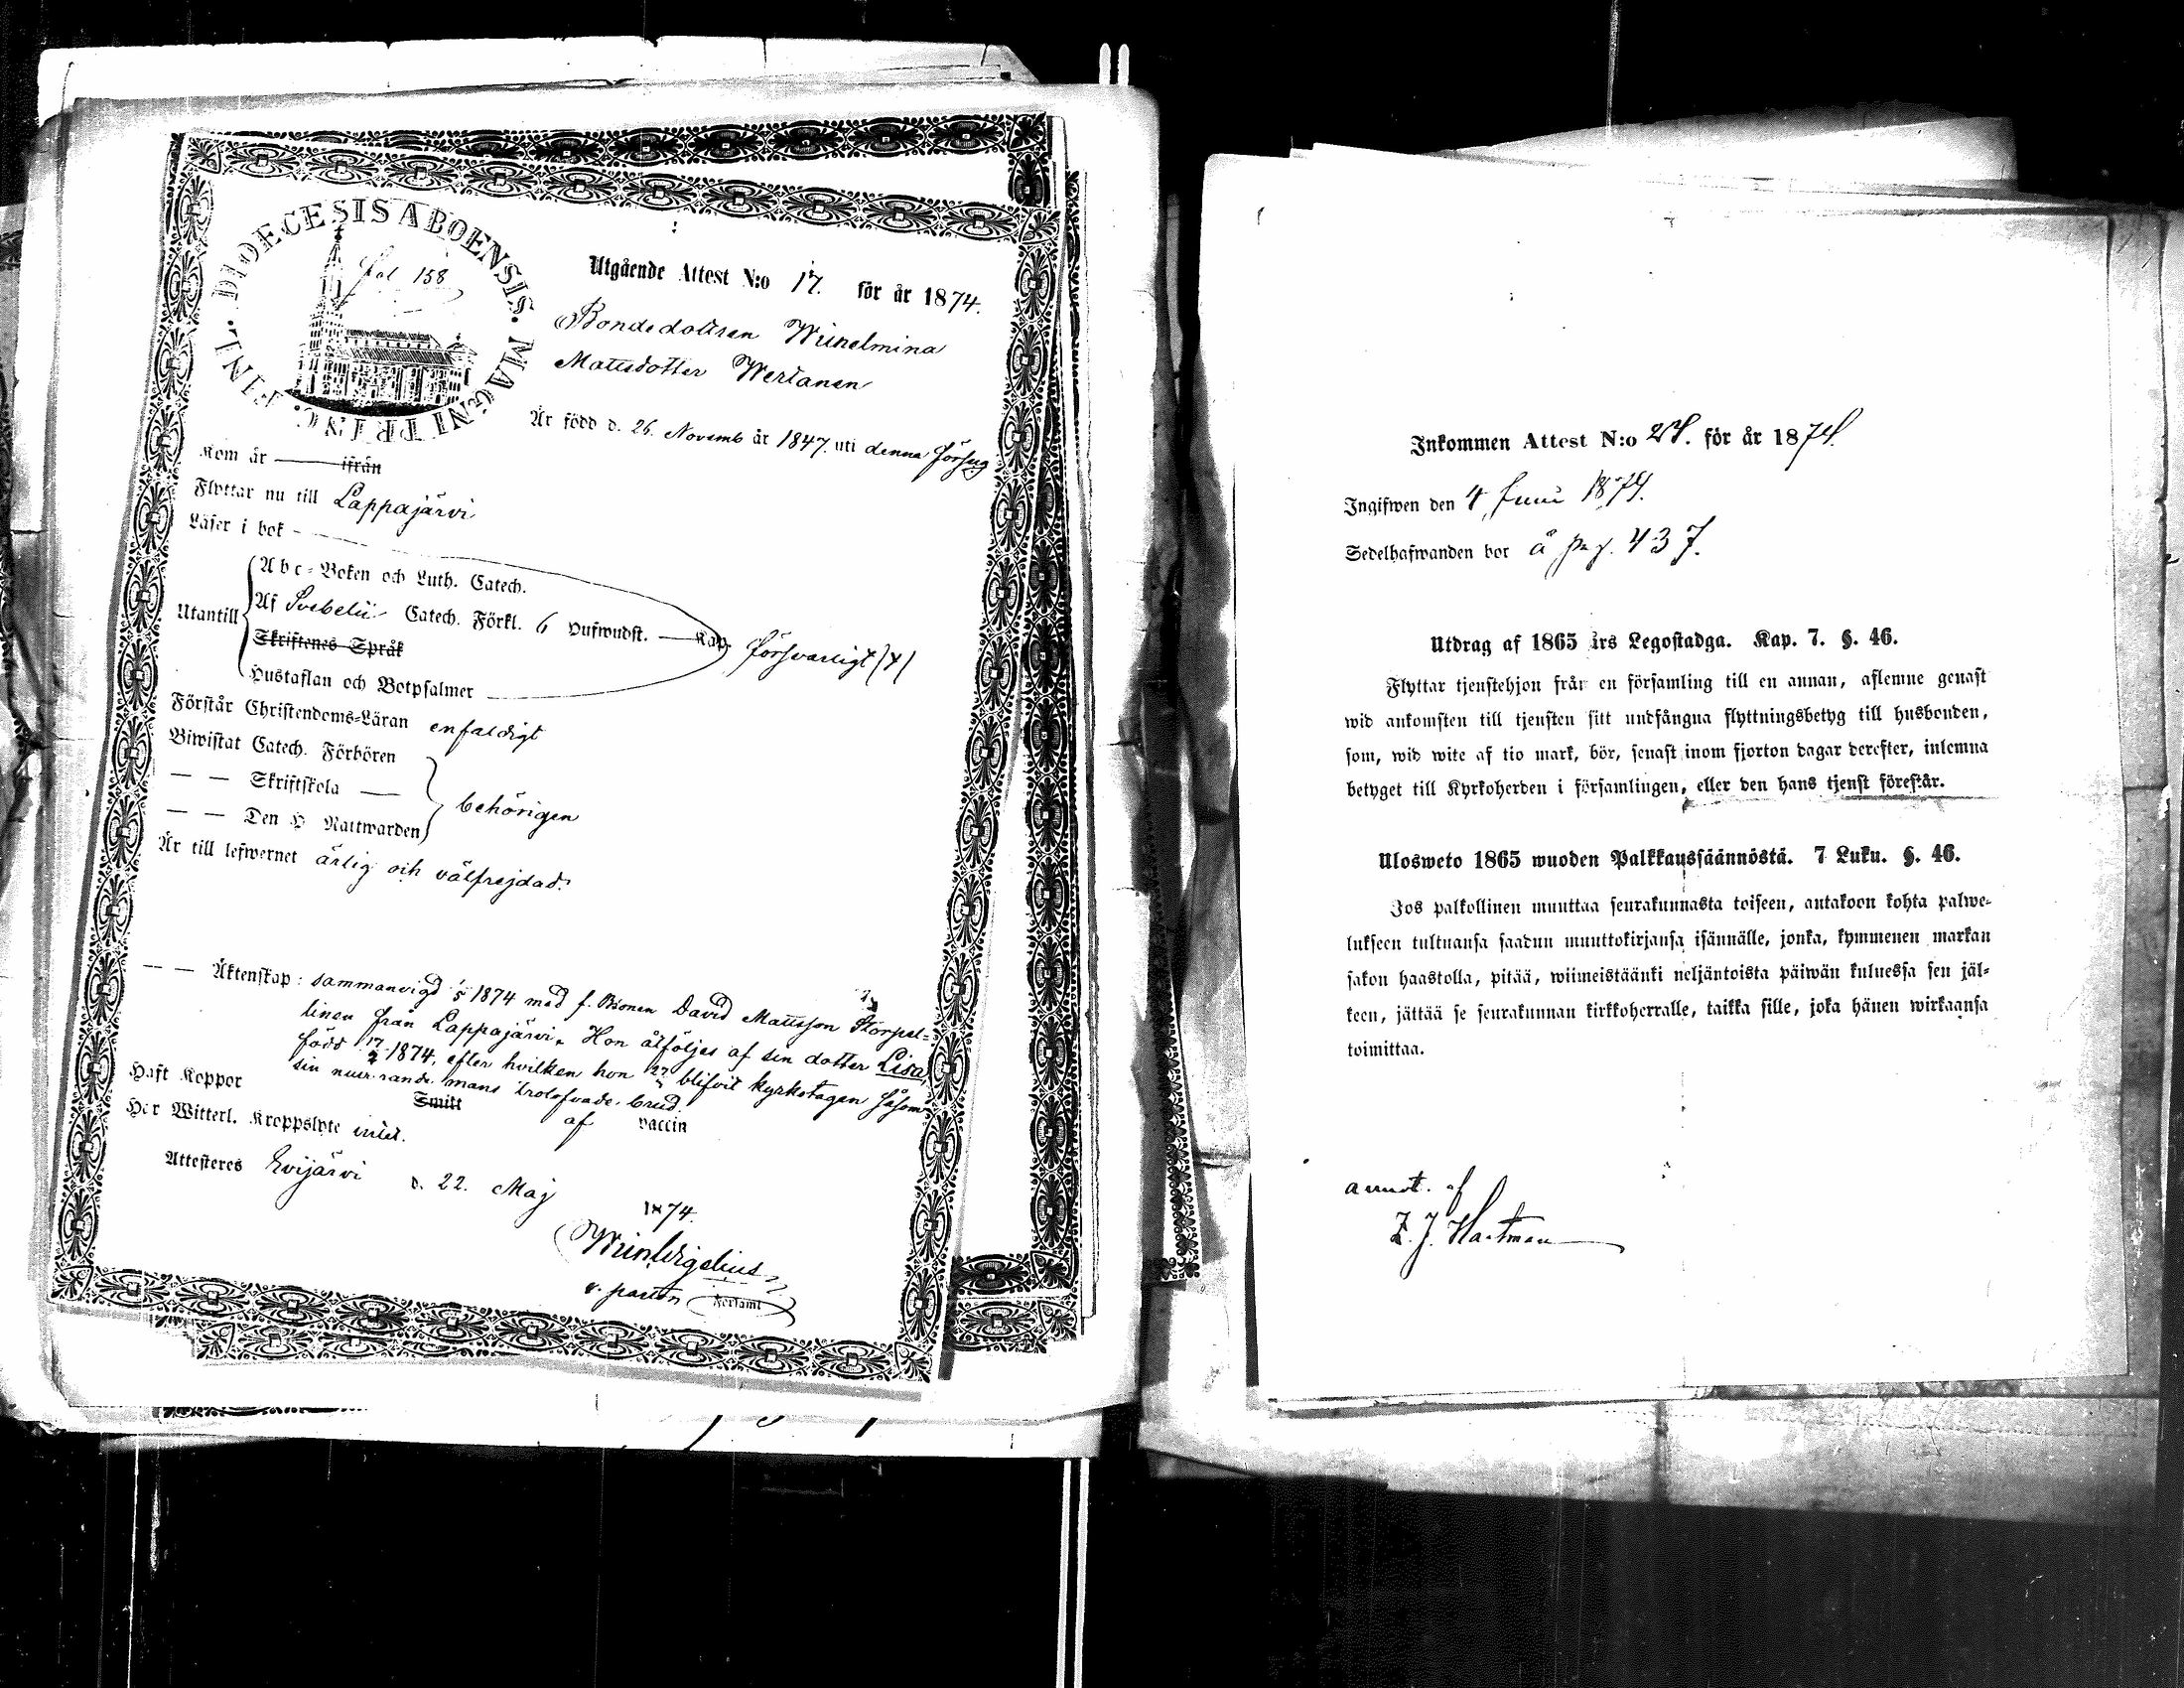 DIOECESIS ABOENSIS. MAGNI PRINC. FINL.
fol 158
Utgående Attest N:o 17. för år 1874.
Bondedottren Wilhelmina
Mattsdotter Wertanen
Är född d. 26. Novemb år 1847. uti denna förslg
Kom år — ifrån
Flyttar nu till Lappajärvi
Läser i bok -
Utantill
Abc-Boken och Luth. Catech.
Af Svebelii Catech. Förkl. 6 Hufwudst. — Kap.
försvarligt (4)
Skriftenes Språk
Hustaflan och Botpsalmer
Förstår Christendoms-Läran enfaldigt
Biwistat Catech. Förhören
— — Skriftskola —
behörigen
— — Den H Nattwarden
Är till lefwernet ärlig och välfrejdad.
— — Äktenskap: sammanvigd 1/5 1874 med f. Bonen David Mattsson Törpel=
linen från Lappajärvi. Hon åtföljes af sin dotter Lisa,
född 17/2 1874, efter hvilken hon blifvit kyrkotagen såsom
sin nuvarande mans trolofvade brud.
Haft Koppor Smitt af vaccin
Har Witterl. Kroppslyte intet.
Attesteres Evijärvi d. 22. Maj 1874.
v. pastor
Inkommen Attest N:o 24. för år 1874.
Ingifwen den 4 Juni 1874.
Sedelhafwanden bor å pag. 437.
Utdrag af 1865 års Legostadga. Kap. 7. §. 46.
Flyttar tjenstehjon från en församling till en annan, aflemne genast
wid ankomsten till tjensten sitt undfångna flyttningsbetyg till husbonden,
som, wid wite af tio mark, bör, senast inom fjorton dagar derefter, inlemna
betyget till Kyrkoherden i församlingen, eller den hans tjenst förestår.
Ulosweto 1865 wuoden Palkkaussäännöstä. 7 Luku. §. 46.
Jos palkollinen muuttaa seurakunnasta toiseen, antakoon kohta palwe-
lukseen tultuansa saadun muuttokirjansa isännälle, jonka, kymmenen markan
sakon haastolla, pitää, wiimeistäänki neljäntoista päiwän kuluessa sen jäl-
keen, jättää se seurakunnan kirkkoherralle, taikka sille, joka hänen wirkaansa
toimittaa.
annot. af
Z. J. Hartman